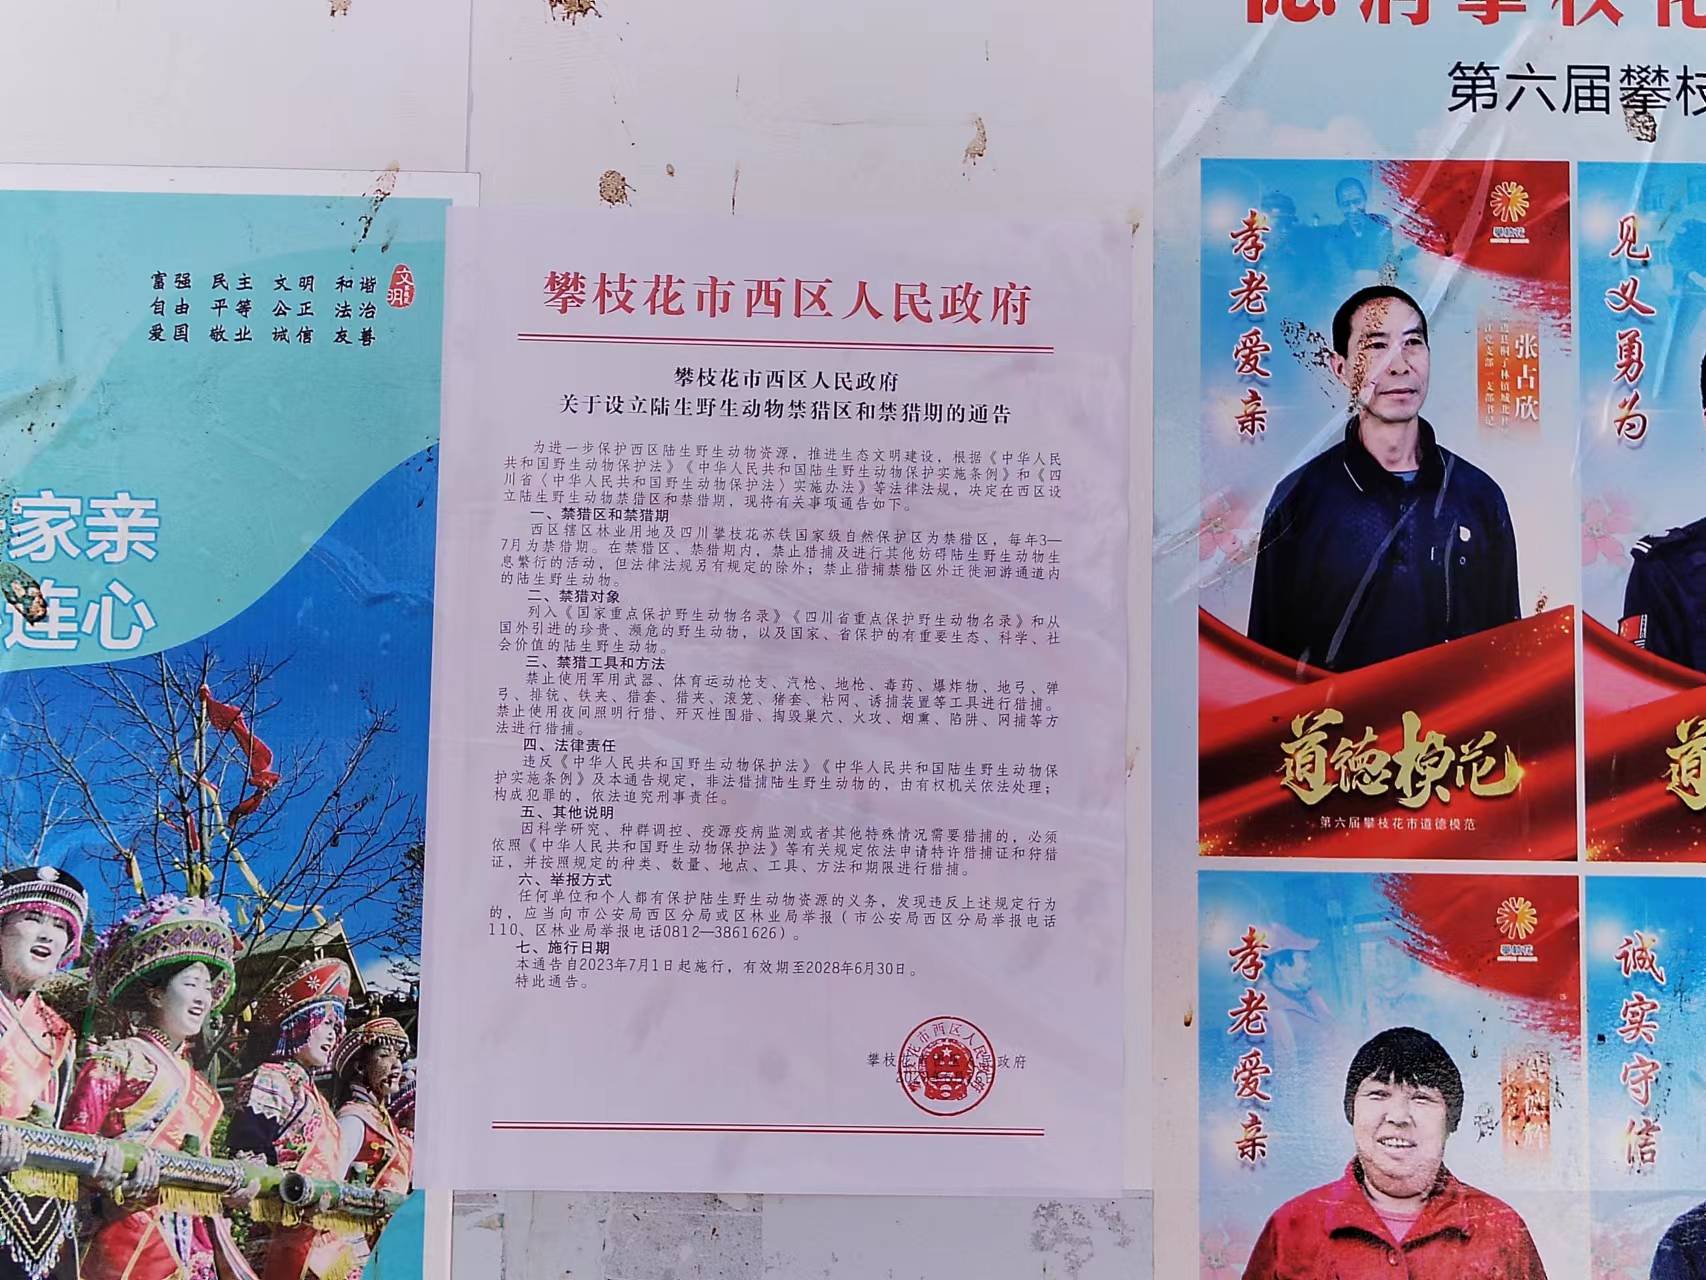 富强 民主 文明 和谐
自由 平等 公正 法治
爱国 敬业 诚信 友善
文明
家亲
连心
攀枝花市西区人民政府
攀枝花市西区人民政府
关于设立陆生野生动物禁猎区和禁猎期的通告
为进一步保护西区陆生野生动物资源，推进生态文明建设，根据《中华人民
共和国野生动物保护法》《中华人民共和国陆生野生动物保护实施条例》和《四
川省〈中华人民共和国野生动物保护法〉实施办法》等法律法规，决定在西区设
立陆生野生动物禁猎区和禁猎期，现将有关事项通告如下。
一、禁猎区和禁猎期
西区辖区林业用地及四川攀枝花苏铁国家级自然保护区为禁猎区，每年3—
7月为禁猎期。在禁猎区、禁猎期内，禁止猎捕及进行其他妨碍陆生野生动物生
息繁衍的活动，但法律法规另有规定的除外；禁止猎捕禁猎区外迁徙洄游通道内
的陆生野生动物。
二、禁猎对象
列入《国家重点保护野生动物名录》《四川省重点保护野生动物名录》和从
国外引进的珍贵、濒危的野生动物，以及国家、省保护的有重要生态、科学、社
会价值的陆生野生动物。
三、禁猎工具和方法
禁止使用军用武器、体育运动枪支、汽枪、地枪、毒药、爆炸物、地弓、弹
弓、排铳、铁夹、猎套、猎夹、滚笼、猪套、粘网、诱捕装置等工具进行猎捕。
禁止使用夜间照明行猎、歼灭性围猎、掏毁巢穴、火攻、烟熏、陷阱、网捕等方
法进行猎捕。
四、法律责任
违反《中华人民共和国野生动物保护法》《中华人民共和国陆生野生动物保
护实施条例》及本通告规定，非法猎捕陆生野生动物的，由有权机关依法处理；
构成犯罪的，依法追究刑事责任。
五、其他说明
因科学研究、种群调控、疫源疫病监测或者其他特殊情况需要猎捕的，必须
依照《中华人民共和国野生动物保护法》等有关规定依法申请特许猎捕证和狩猎
证，并按照规定的种类、数量、地点、工具、方法和期限进行猎捕。
六、举报方式
任何单位和个人都有保护陆生野生动物资源的义务，发现违反上述规定行为
的，应当向市公安局西区分局或区林业局举报（市公安局西区分局举报电话
110、区林业局举报电话0812—3861626）。
七、施行日期
本通告自2023年7月1日起施行，有效期至2028年6月30日。
特此通告。
攀枝 政府
攀枝花市西区人民政府
润攀枝花
第六届攀枝
孝老爱亲
攀枝花
张占欣
道德模范
第六届攀枝花市道德模范
见义勇为
道
孝老爱亲
攀枝花
诚实守信